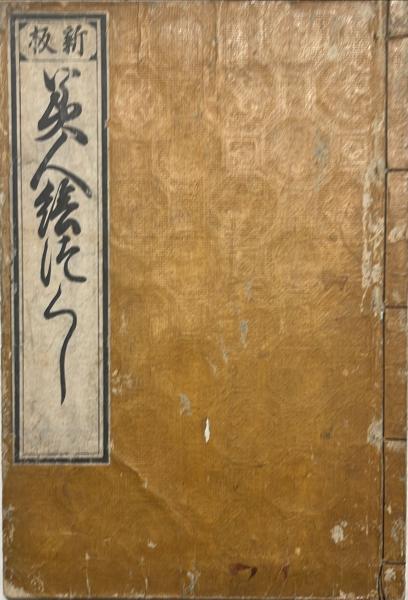 新板
美人絵つくし